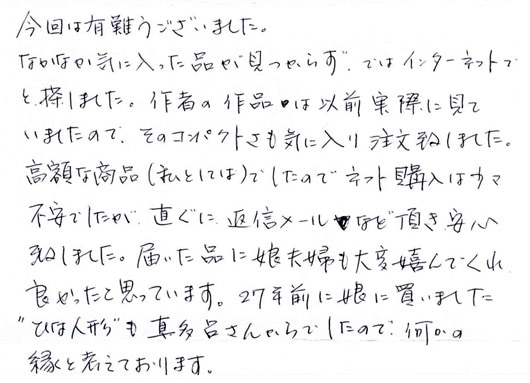 今回は有難うございました。
なかなか気に入った品が見つからず、ではインターネットで
と探しました。作者の作品は以前実際に見て
いましたので、そのコンパクトさも気に入り注文致しました。
高額な商品(私としては)でしたのでネット購入は少々
不安でしたが、直ぐに返信メールなど頂き安心
致しました。届いた品に娘夫婦も大変嬉んでくれ
良かったと思っています。27年前に娘に買いました
"ひな人形"も真多呂さんからでしたので、何かの
縁と考えております。